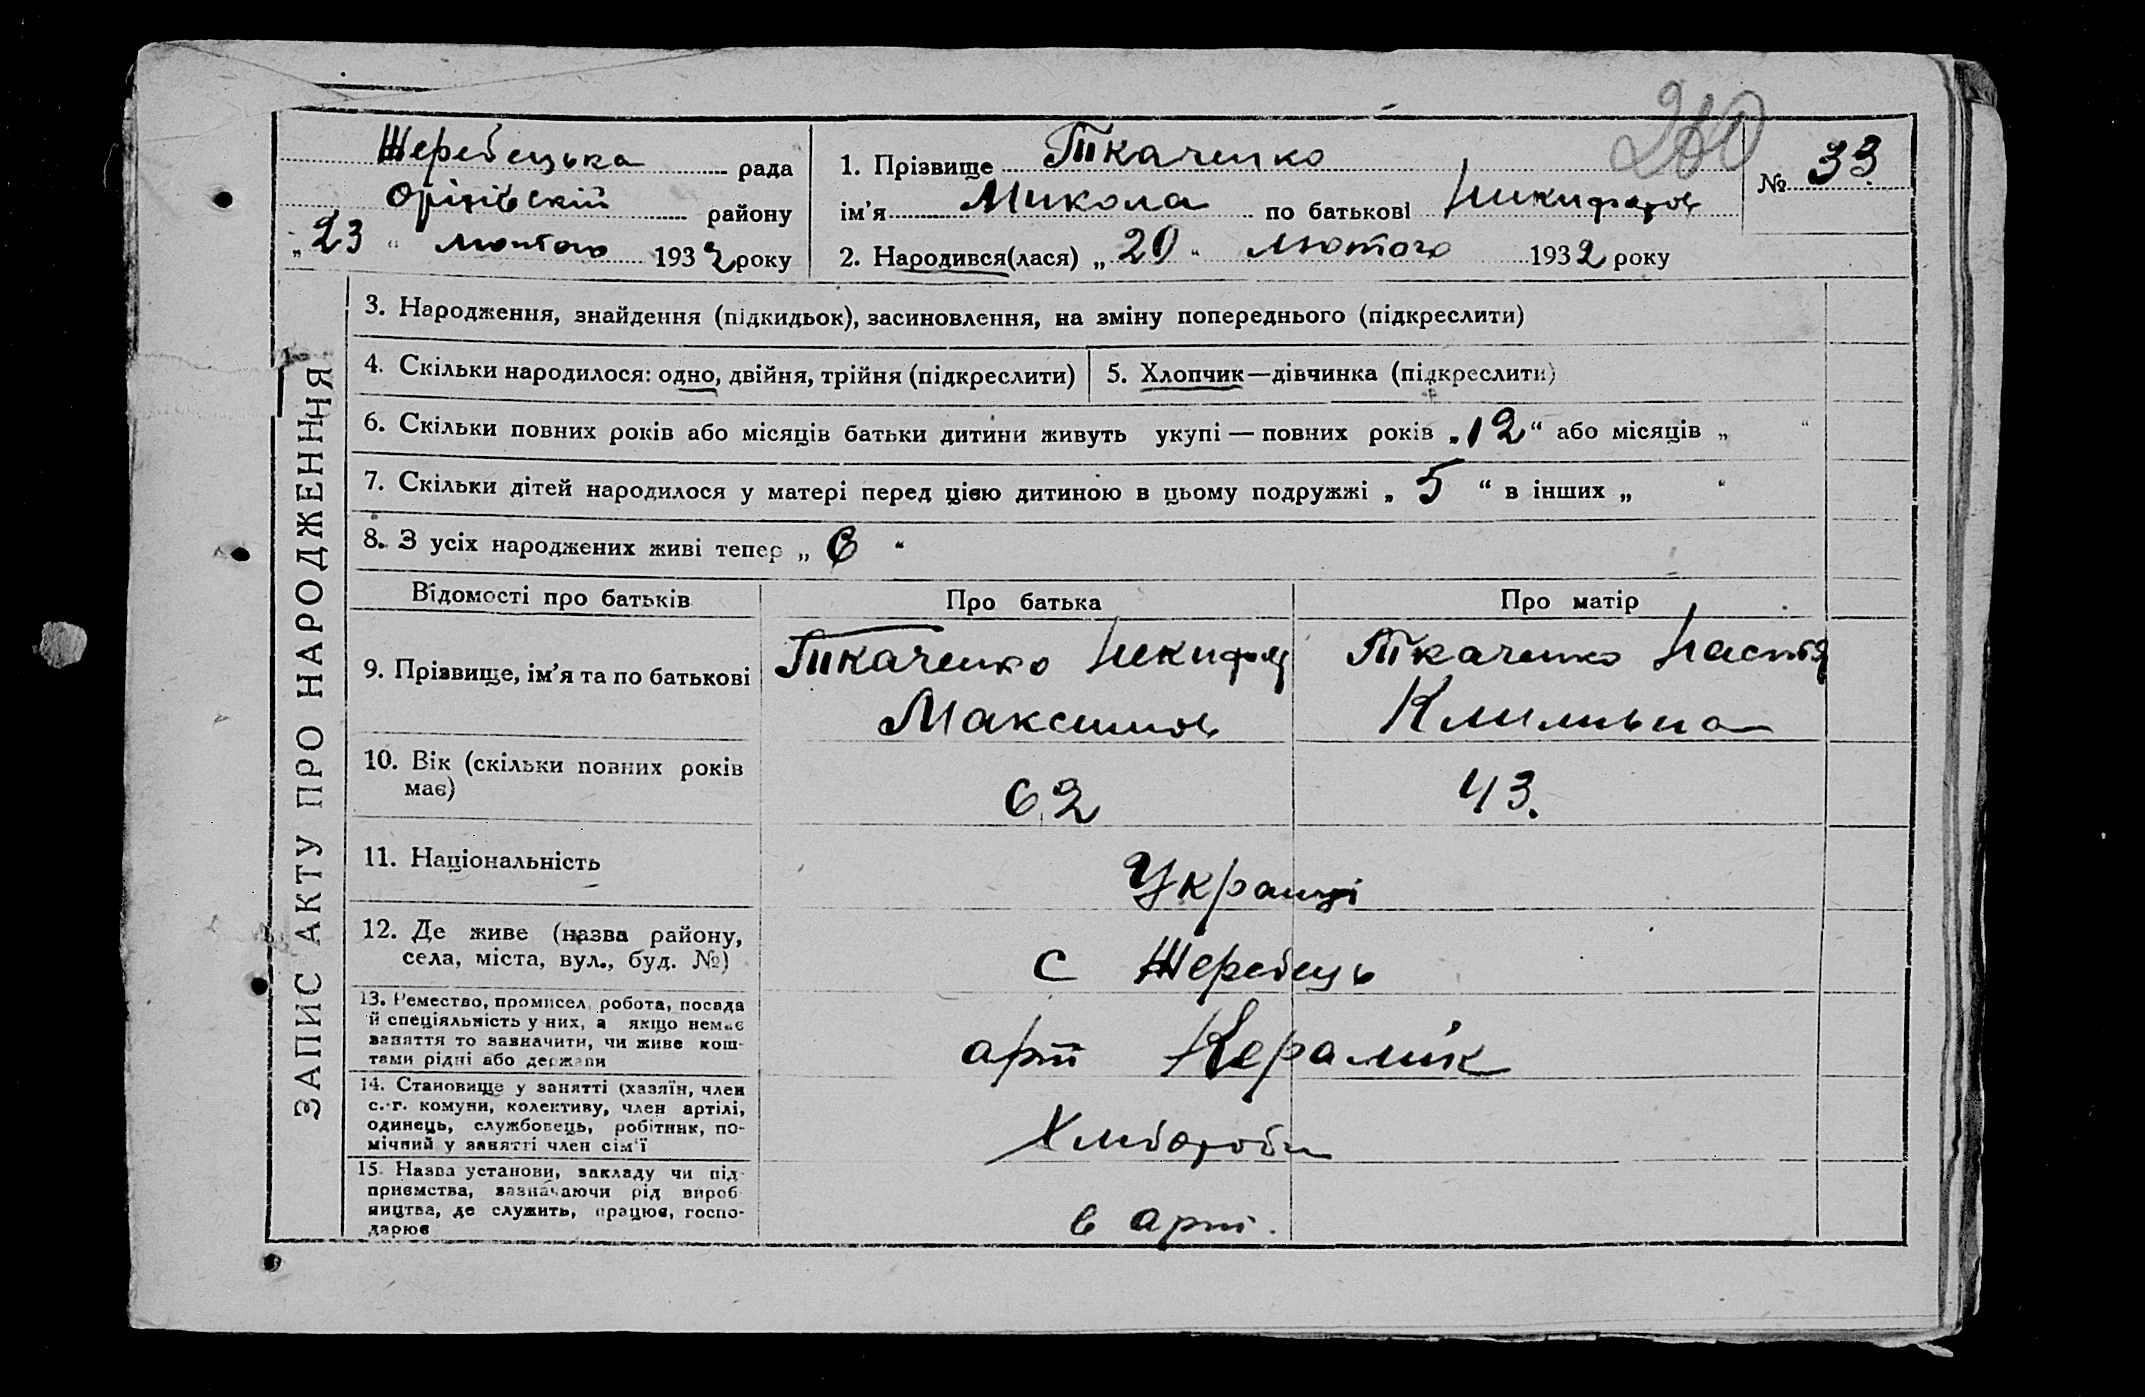 280
Жеребецька рада
Оріхівській району
„23“ лютого 1932 року
1. Прізвище Ткаченко
ім’я Микола по батькові Никифоров
№ 33
2. Народився(лася) „20“ лютого 1932 року
ЗАПИС АКТУ ПРО НАРОДЖЕННЯ
3. Народження, знайдення (підкидьок), засиновлення, на зміну попереднього (підкреслити)
4. Скільки народилося: одно, двійня, трійня (підкреслити)
5. Хлопчик—дівчинка (підкреслити)
6. Скільки повних років або місяців батьки дитини живуть укупі — повних років „12“ або місяців „ “
7. Скільки дітей народилося у матері перед цією дитиною в цьому подружжі „5“ в інших „ “
8. З усіх народжених живі тепер „6“
Відомості про батьків
Про батька
Про матір
9. Прізвище, ім’я та по батькові
Ткаченко Никифор
Максимов
Ткаченко Настя
Климивна
10. Вік (скільки повних років
має)
62
43.
11. Національність
Украінці
12. Де живе (назва району,
села, міста, вул., буд. №)
с Жеребець
13. Ремество, промисел, робота, посада
й спеціяльність у них, а якщо немає
заняття то зазначити, чи живе кош-
тами рідні або держави
арт Керамік
14. Становище у занятті (хазяїн, член
с.-г. комуни, колективу, член артілі,
одинець, службовець, робітник, по-
мічний у занятті член сім’ї
Хлібороби
15. Назва установи, закладу чи під-
приємства, зазначаючи рід вироб-
ництва, де служить, працює, госпо-
дарює
в арті.